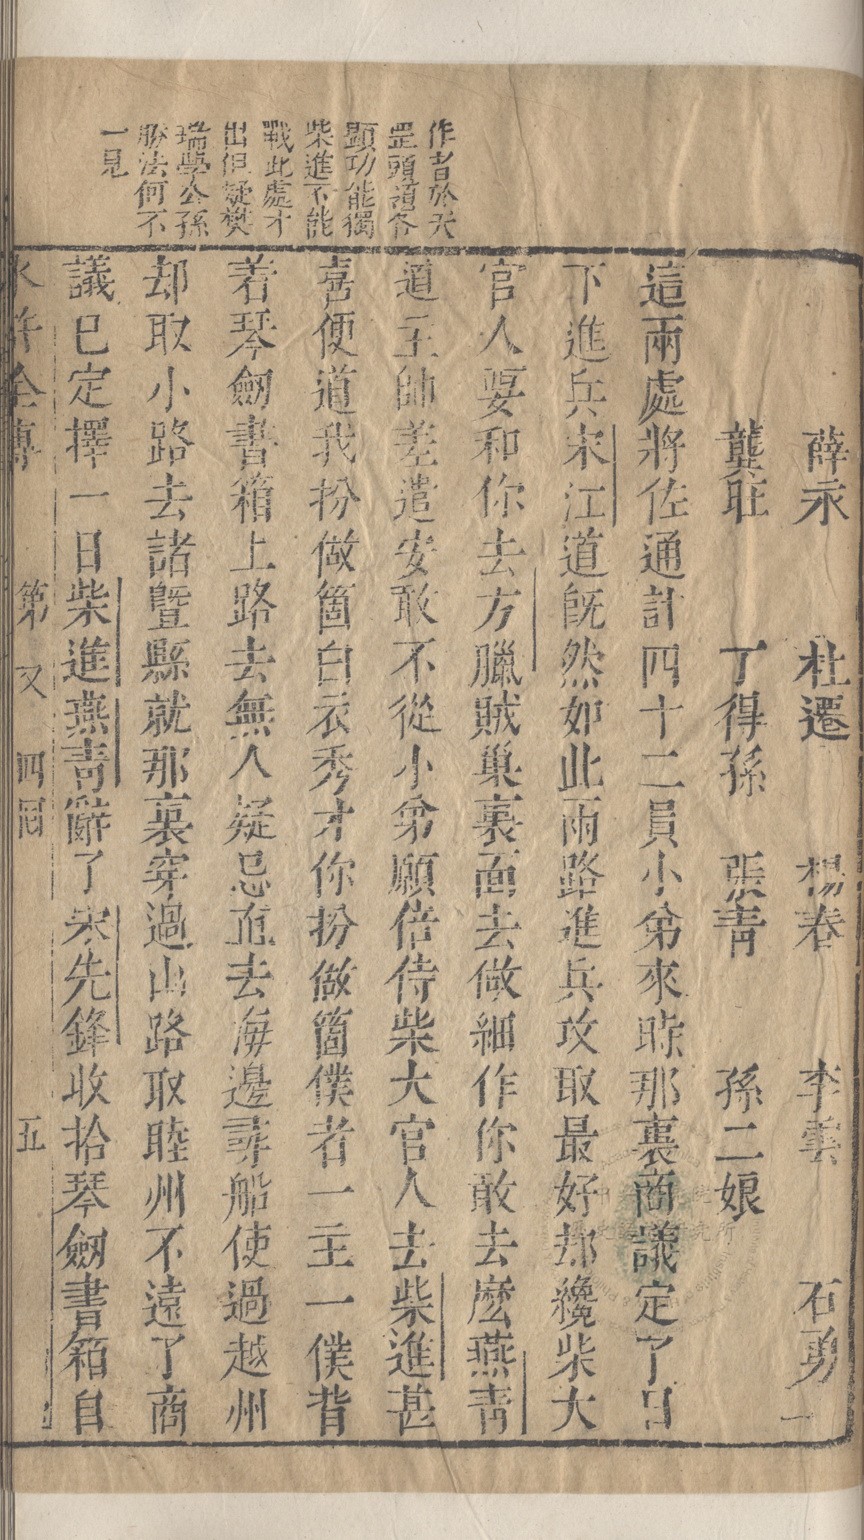 作者於天
罡頭領各
顯功能獨
柴進不能
戰此處才
出但疑樊
瑞學公孫
勝法何不
一見
薛永　杜遷　楊春　李雲　石勇
龔旺　丁得孫　張青　孫二娘
這兩處將佐通計四十二員小弟來時那裏商議定了目
下進兵宋江道既然如此兩路進兵攻取最好却纔柴大
官人要和你去方臘賊巢裏面去做細作你敢去麽燕青
道主帥差遣安敢不從小弟願倍侍柴大官人去柴進甚
喜便道我扮做箇白衣秀才你扮做箇僕者一主一僕背
着琴劒書箱上路去無人疑忌直去海邊尋船使過越州
却取小路去諸暨縣就那裏穿過山路取睦州不遠了商
議已定擇一日柴進燕青辭了宋先鋒收拾琴劒書箱自
水許全傳　第　又　四囘　五